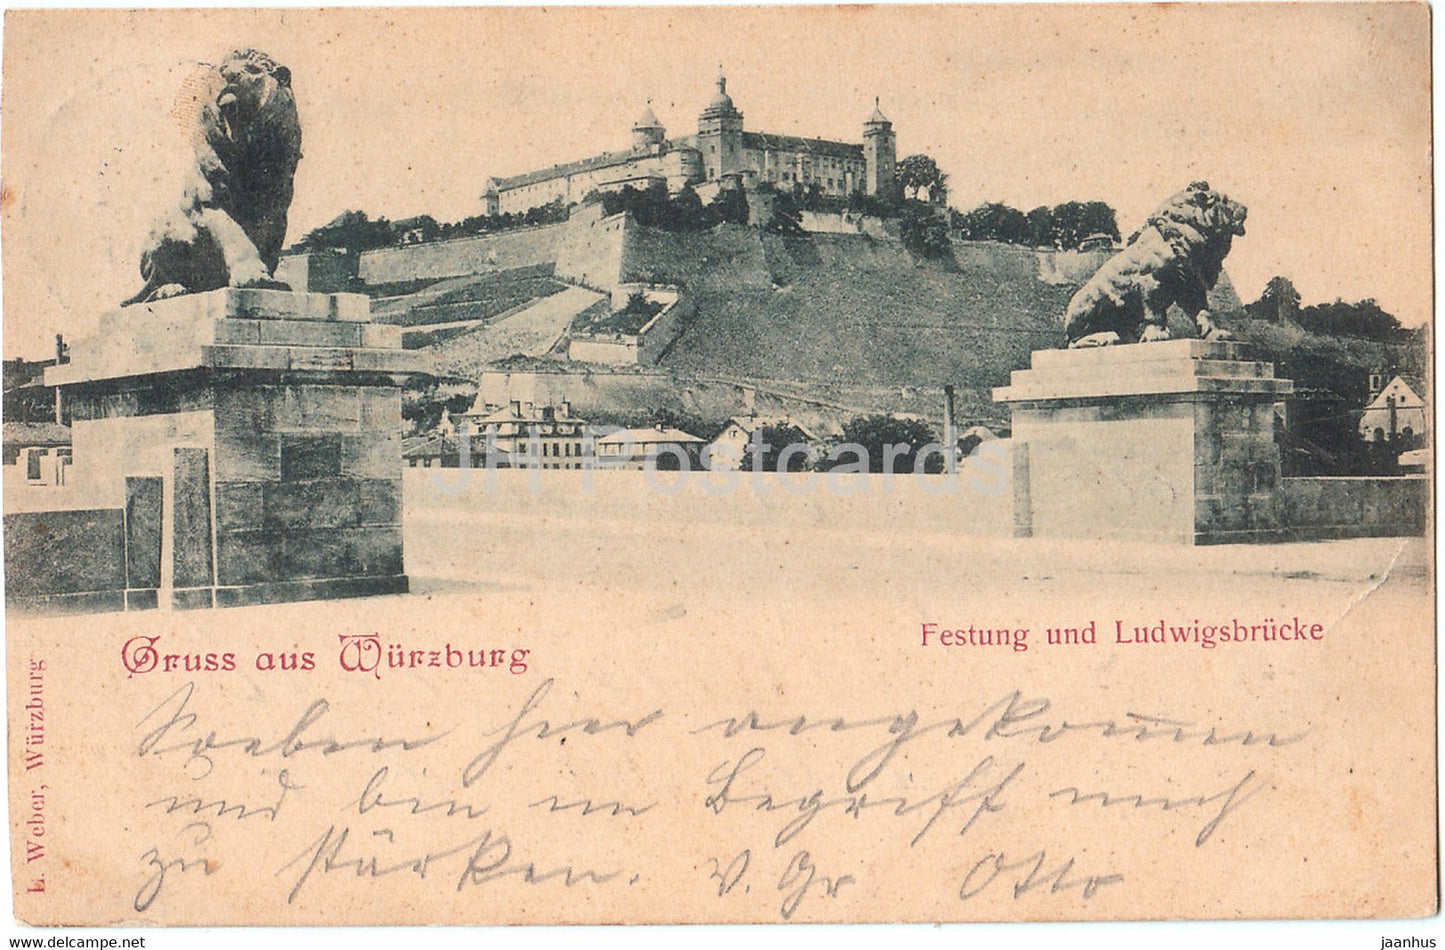 Gruss aus Würzburg
Festung und Ludwigsbrücke
L. Weber, Würzburg
JH Postcards
Soeben hier angekom̅en
und bin im Begriff mich
zu stärken. V. Gr Otto
jaanhus
www.delcampe.net